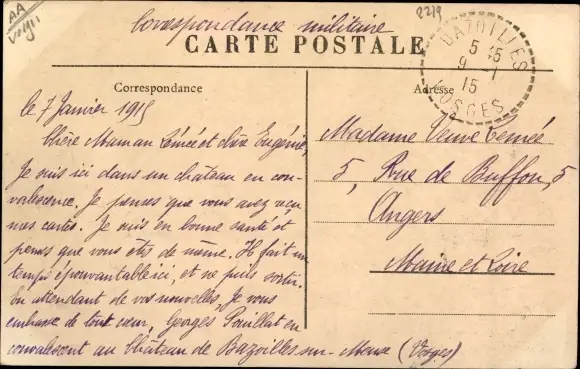 AA
Vosges
2219
Correspondance militaire
CARTE POSTALE
BAZOILLES
5 45
9 -1
15
VOSGES
Correspondance
Adresse
le 7 Janvier 1915
Chère Maman et chère Eugénie,
Je suis ici dans un château en con-
valescence. Je penses que vous avez reçu
mes cartes. Je suis en bonne santé et
penses que vous êtes de même. Il fait un
temps épouvantable ici, et ne puis sortir.
En attendant de vos nouvelles, Je vous
embrasse de tout cœur, Georges Pouillat en
convalescent au Château de Bazoilles-sur-Meuse (Vosges)
Madame Veuve
5, Rue de Buffon, 5
Angers
Maine et Loire